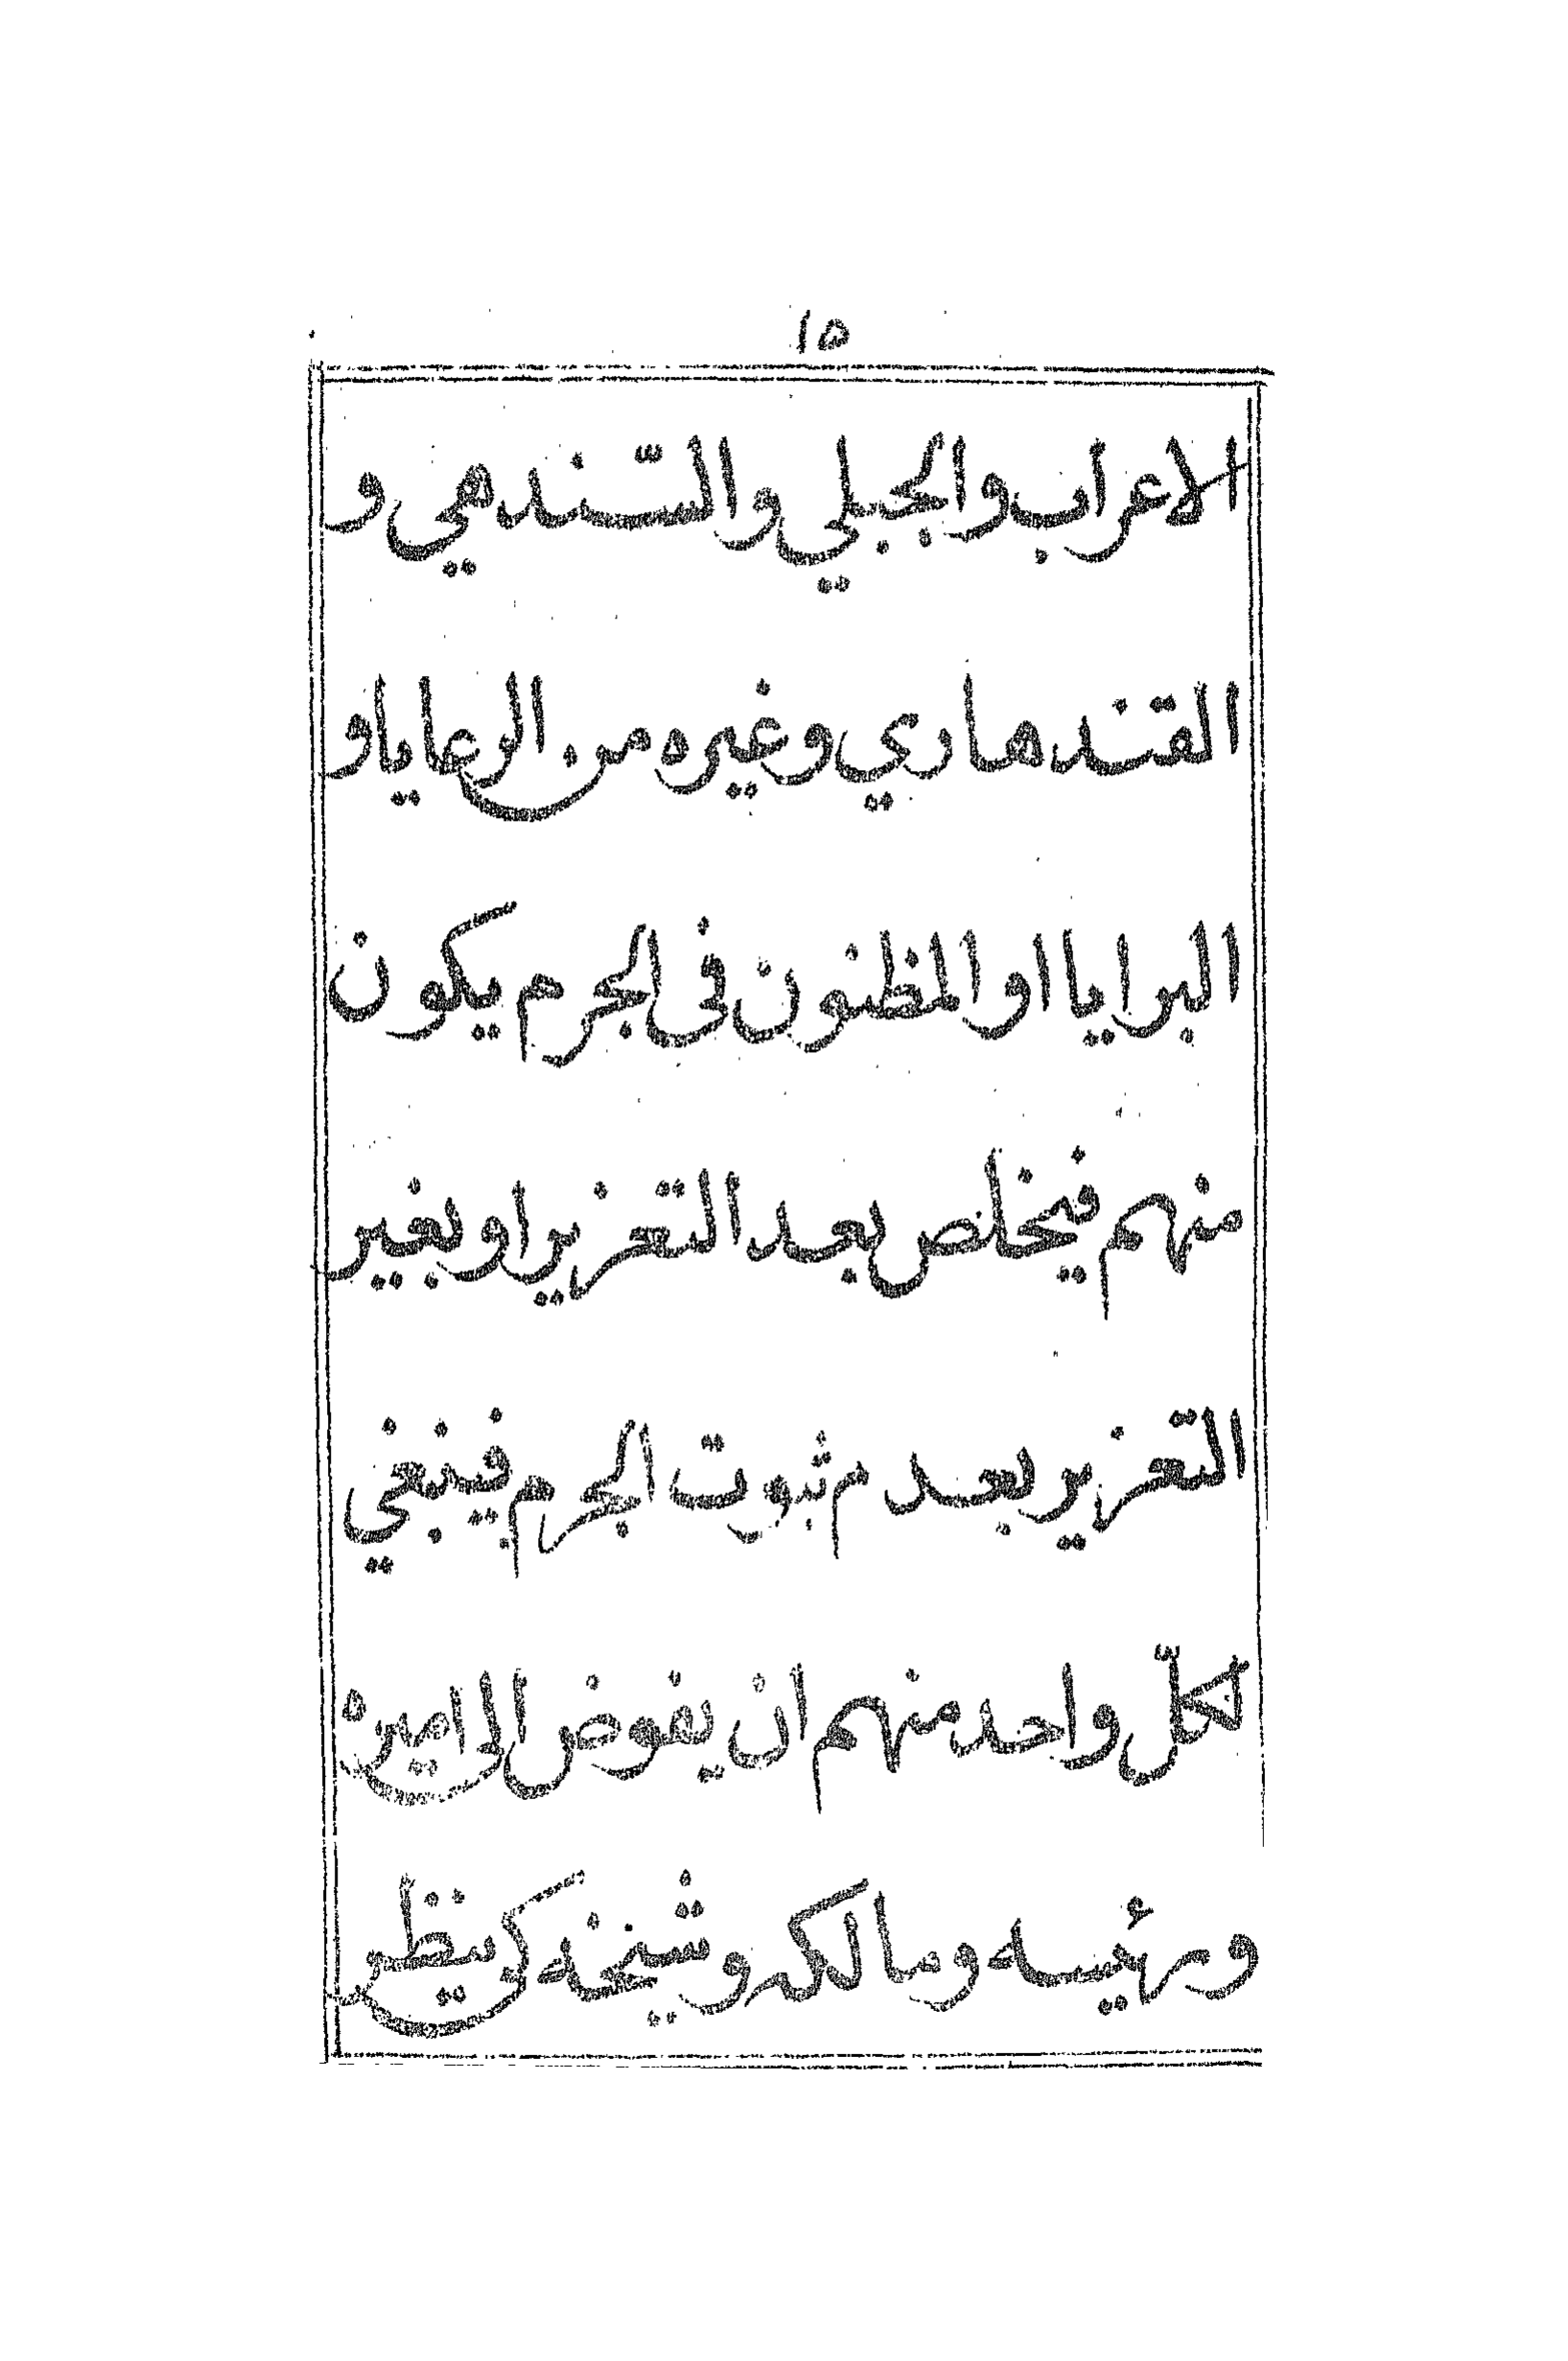 ١٥
الاعراب والجبلي والسّندهي و
القندهاري وغيره من الرعايا و
البرايا او المظنون فى الجرم يكون
منهم فيخلص بعد التعزير او بغير
التعزير بعد م ثبوت الجرم فينبغي
لكلّ واحد منهم ان يفوض الى اميره
ورئيسه ومالكه وشيخه كى ينظر